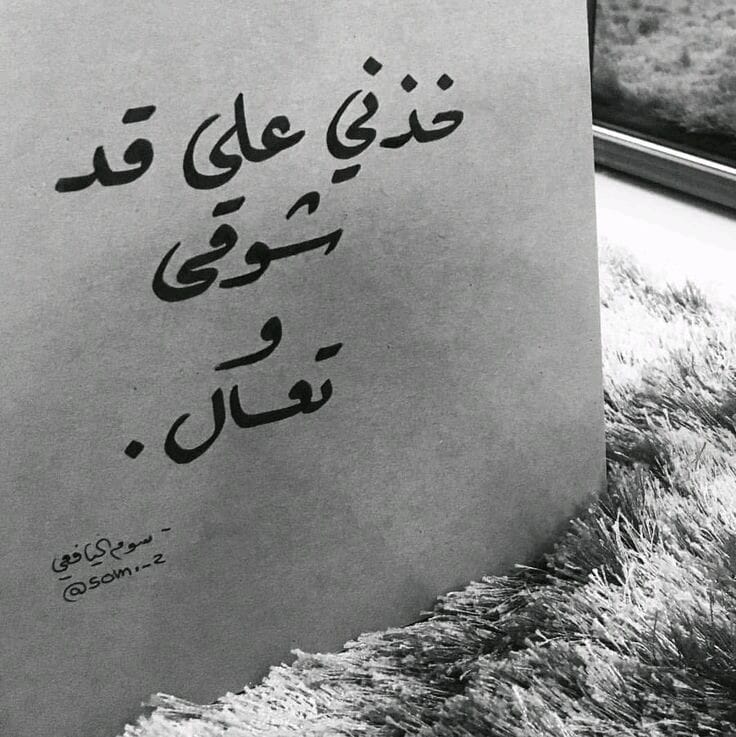 خذني على قد
شوقي
و
تعال .
- سوم اليافعي
@som._2